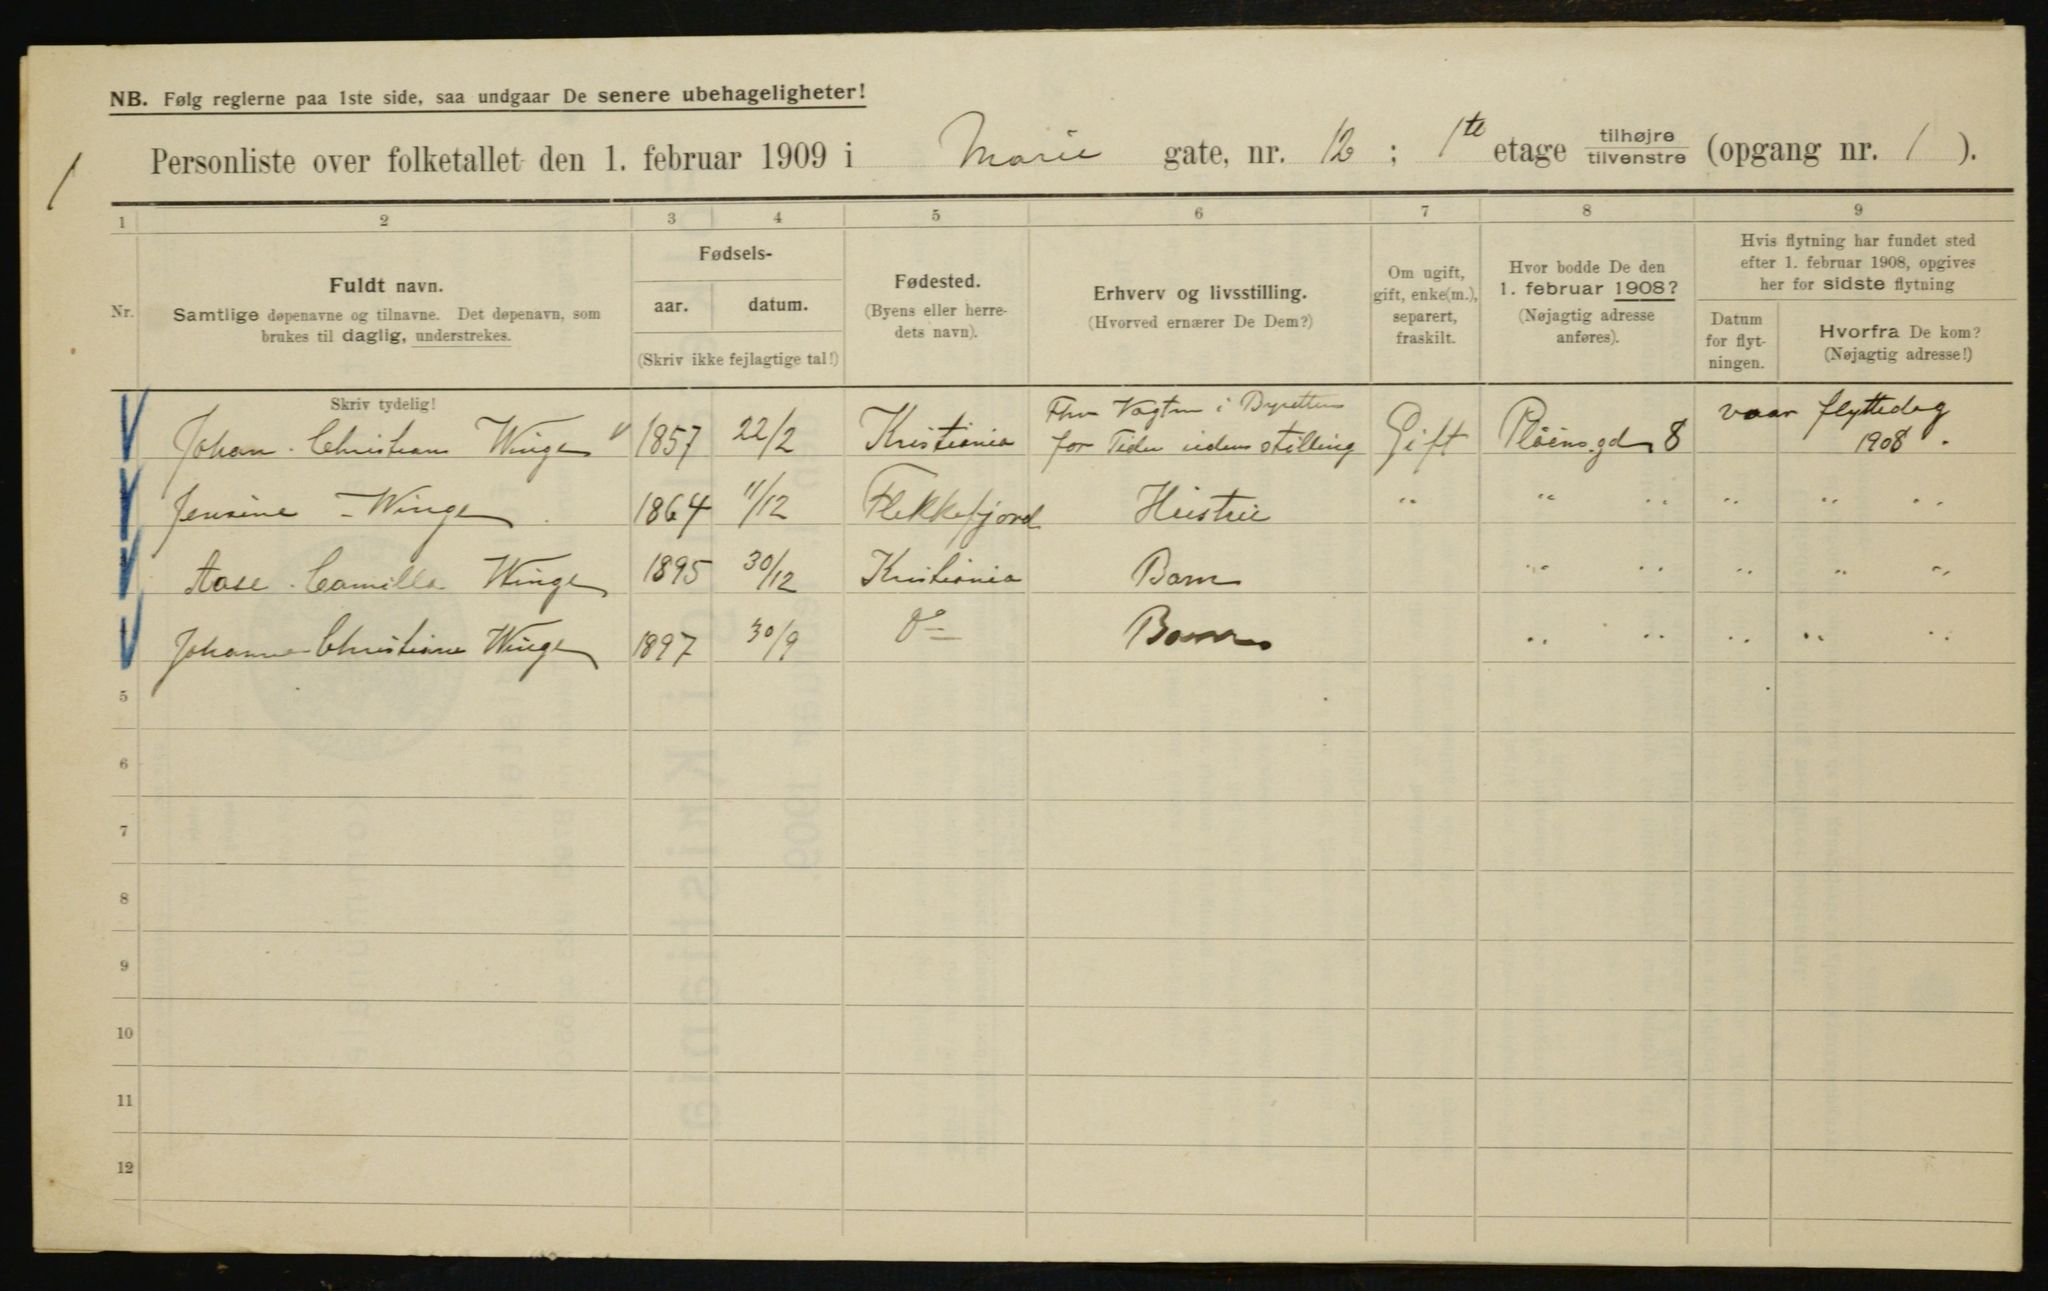 NB. Følg reglerne paa 1ste side, saa undgaar De senere ubehageligheter!
1
Personliste over folketallet den 1. februar 1909 i Marie gate, nr. 12 ; 1te etage tilhøjre tilvenstre (opgang nr. 1 ).
1 2 3 4 5 6 7 8 9
Nr.
Fuldt navn.
Samtlige døpenavne og tilnavne. Det døpenavn, som
brukes til daglig, understrekes.
Fødsels-
aar. datum.
(Skriv ikke fejlagtige tal!)
Fødested.
(Byens eller herre-
dets navn).
Erhverv og livsstilling.
(Hvorved ernærer De Dem?)
Om ugift,
gift, enke(m.),
separert,
fraskilt.
Hvor bodde De den
1. februar 1908?
(Nøjagtig adresse
anføres).
Hvis flytning har fundet sted
efter 1. februar 1908, opgives
her for sidste flytning
Datum
for flyt-
ningen.
Hvorfra De kom?
(Nøjagtig adresse!)
Skriv tydelig!
Johan Christian Winge 1857 22/2 Kristiania Fhv Vagtm i Byretten
for Tiden uden stilling Gift Pløens gd 8 vaar flyttedag
1908.
Jensine Winge 1864 11/12 Flekkefjord Hustru " " " " " "
Aase Camilla Winge 1895 30/12 Kristiania Barn " " " " "
Johanne Christiane Winge 1897 30/9 Do Barn " " " " "
5
6
7
8
9
10
11
12